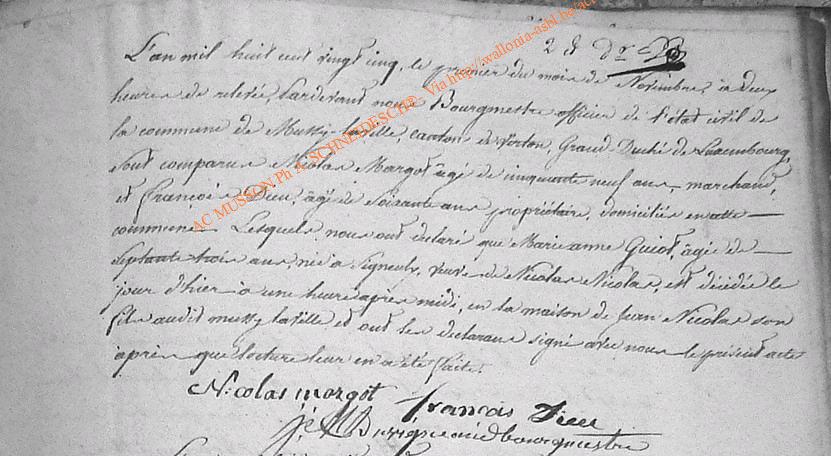 28 Dr
L'an mil huit cent vingt cinq, le premier du mois de Novembre, à deux
heures de relevée, Pardevant nous Bourgmestre officier de l'état civil de
la commune de Mussy-la-ville, canton de Virton, Grand-Duché de Luxembourg,
sont comparus Nicolas Margot âgé de cinquante neuf ans, marchand,
et François Dieu, âgé de soixante ans propriétaire, domiciliés en cette
commune Lesquels nous ont déclaré que Marie anne Guiot, âgée de
septante trois ans, née à Signeulx, veuve de Nicolas Nicolas, est décédée le
jour d'hier à une heure après midi, en la maison de Jean Nicolas son
fils audit mussy la ville et ont les déclarans signé avec nous le présent acte
après que lecture leur en a été faite.
Nicolas margot françois Dieu
bourgmestre
AC MUSSON Ph A SCHNEIDESCH © Via http://wallonia-asbl.be/ac